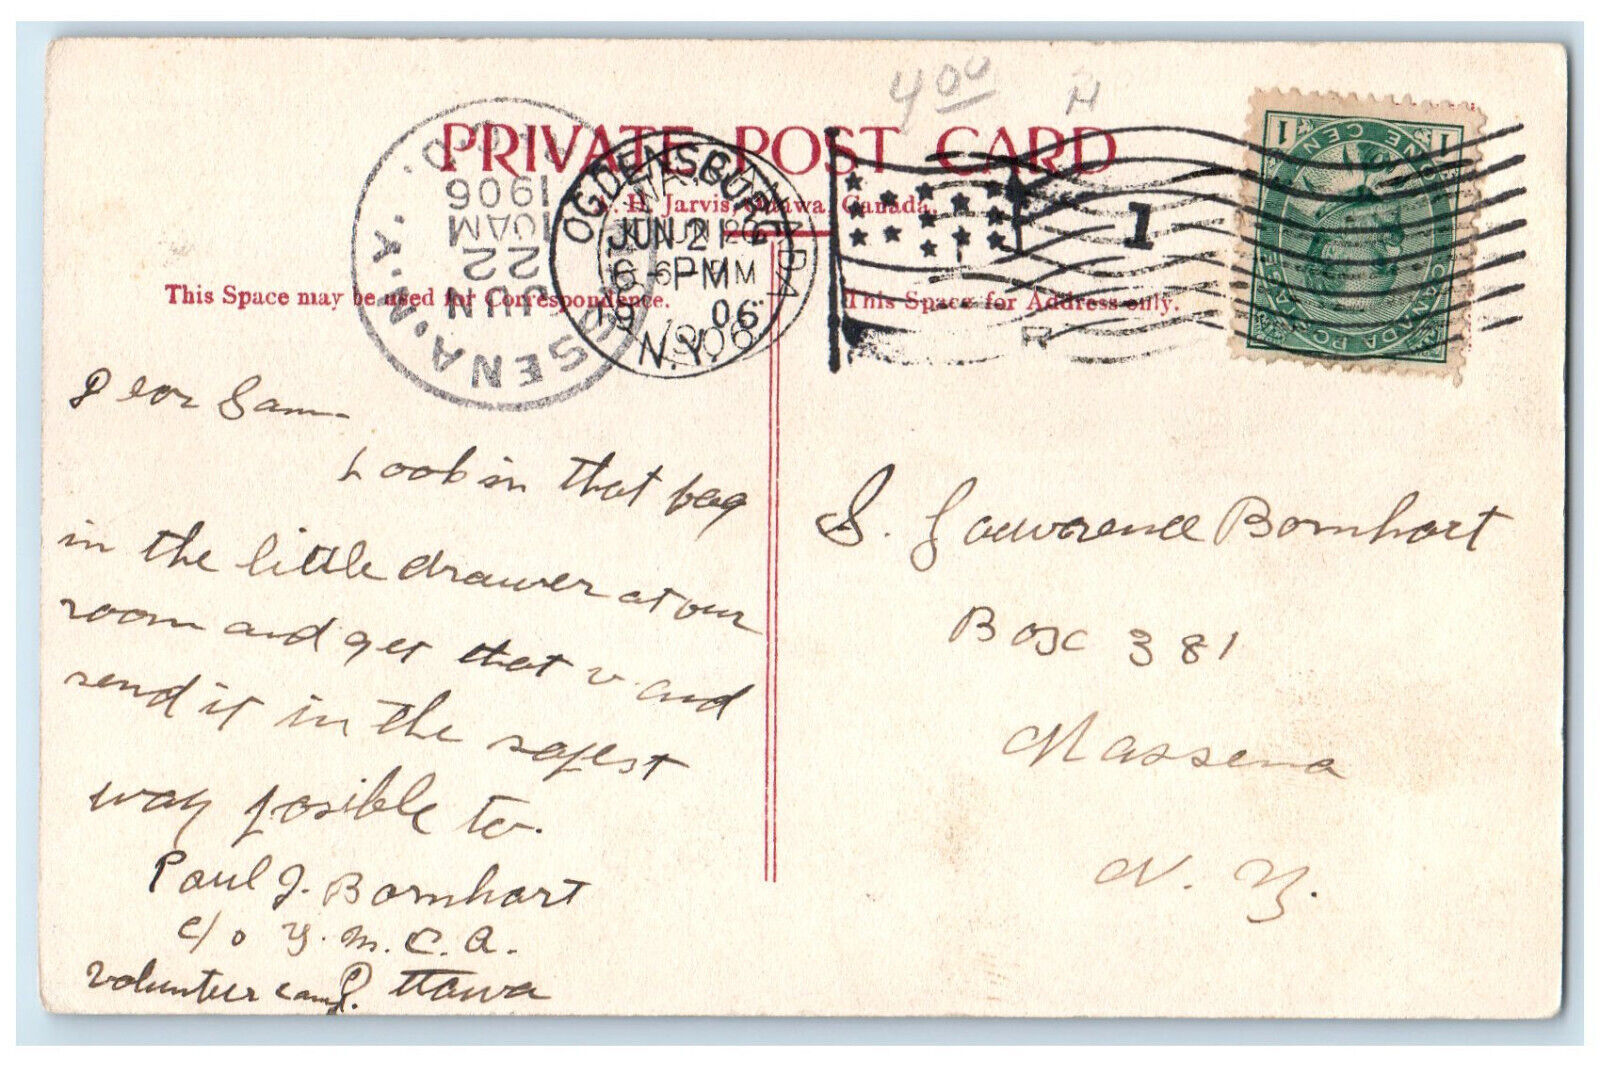 4 00 H
PRIVATE POST CARD
A. H. Jarvis, Ottawa, Canada.
OGDENSBURG
JUN 21
6-PM
1906
N.Y.
MASSENA, N.Y.
JUN
22
10AM
1906
REC'D.
1
R
CANADA POSTAGE
ONE CENT
1 1
This Space may be used for Correspondence.
This Space for Address only.
Dear Sam-
Look in that bag
in the little drawer at our
room and get that v. and
send it in the safest
way posible to.
Paul J. Barnhart
c/o Y.M.C.A.
Volunteer camp. Ottawa
S. Lawrence Barnhart
Box 381
Massena
N. Y.